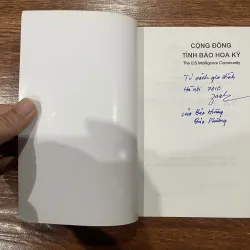 CỘNG ĐỒNG
TÌNH BÁO HOA KỲ
The U.S Intelligence Community
Tủ sách gia đình
Hà nội 2010
của Bảo Hương
Bảo Phương